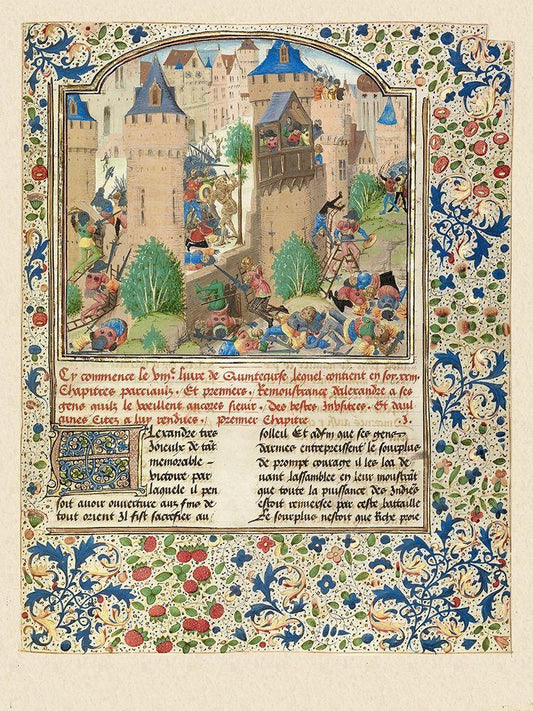 Cy commence le viiie livre de Quinteurse lequel contient en soy xxiii
Chapitres parciaulx. Et premiers. Remoustrance dalexandre a ses
gens quilz le voeillent ancores sieuir. Des bestes Indisicees. Et daul
cunes Citez a luy rendues. premier Chapitre .I.
Alexandre tres
Joieulx de tāt
memorable
victoire par
laquele il pen
soit auoir ouuerture aux fins de
tout orient Il fist sacrifier au
solleil Et adfin que ses gens
darmes entrepreissent le sourplus
de prompt courage il les loa de
uant lassamblee en leur moustrāt
que toute la puissance des Indiēs
estoit renuersee par ceste bataille
Le sourplus nestoit que riche proie